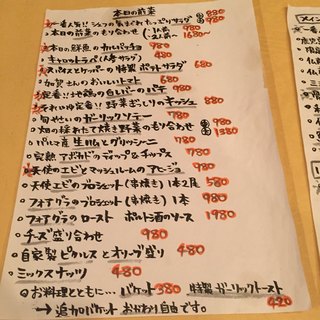 本日の前菜
一番人気!! シェフの気まぐれ たっぷりサラダ 880 980
本日の前菜のもり合わせ 1人前〜 980 2人前〜 1680〜
本日の鮮魚のカルパッチョ 980
キャロットラペ (人参サラダ) 480
スパイスとケッパーの特製 ポテトサラダ 680
加賀さんのおいしいトマト 680
定番!! 地鶏の白レバーのパテ 980
それいけ定番!! 野菜ぎっしりのキッシュ 880
旬やさいのガーリックソテー 780
畑の採れたて焼き野菜のもり合わせ 980 1380
パルマ産 生ハムとグリッシーニ 780
完熟 アボカドのディップ&チップス 780
天使のエビとマッシュルームのアヒージョ 980
天使エビのブロシェット (串焼き) 1本2尾 580
フォアグラのブロシェット (串焼き) 1本 980
フォアグラの ロースト ポルト酒のソース 1980
チーズ盛り合わせ 980
自家製 ピクルスと オリーブ盛り 480
ミックスナッツ 480
お料理とともに… バケット 380 特製ガーリックトースト 420
→ 追加バケット おかわり自由です。
メイン